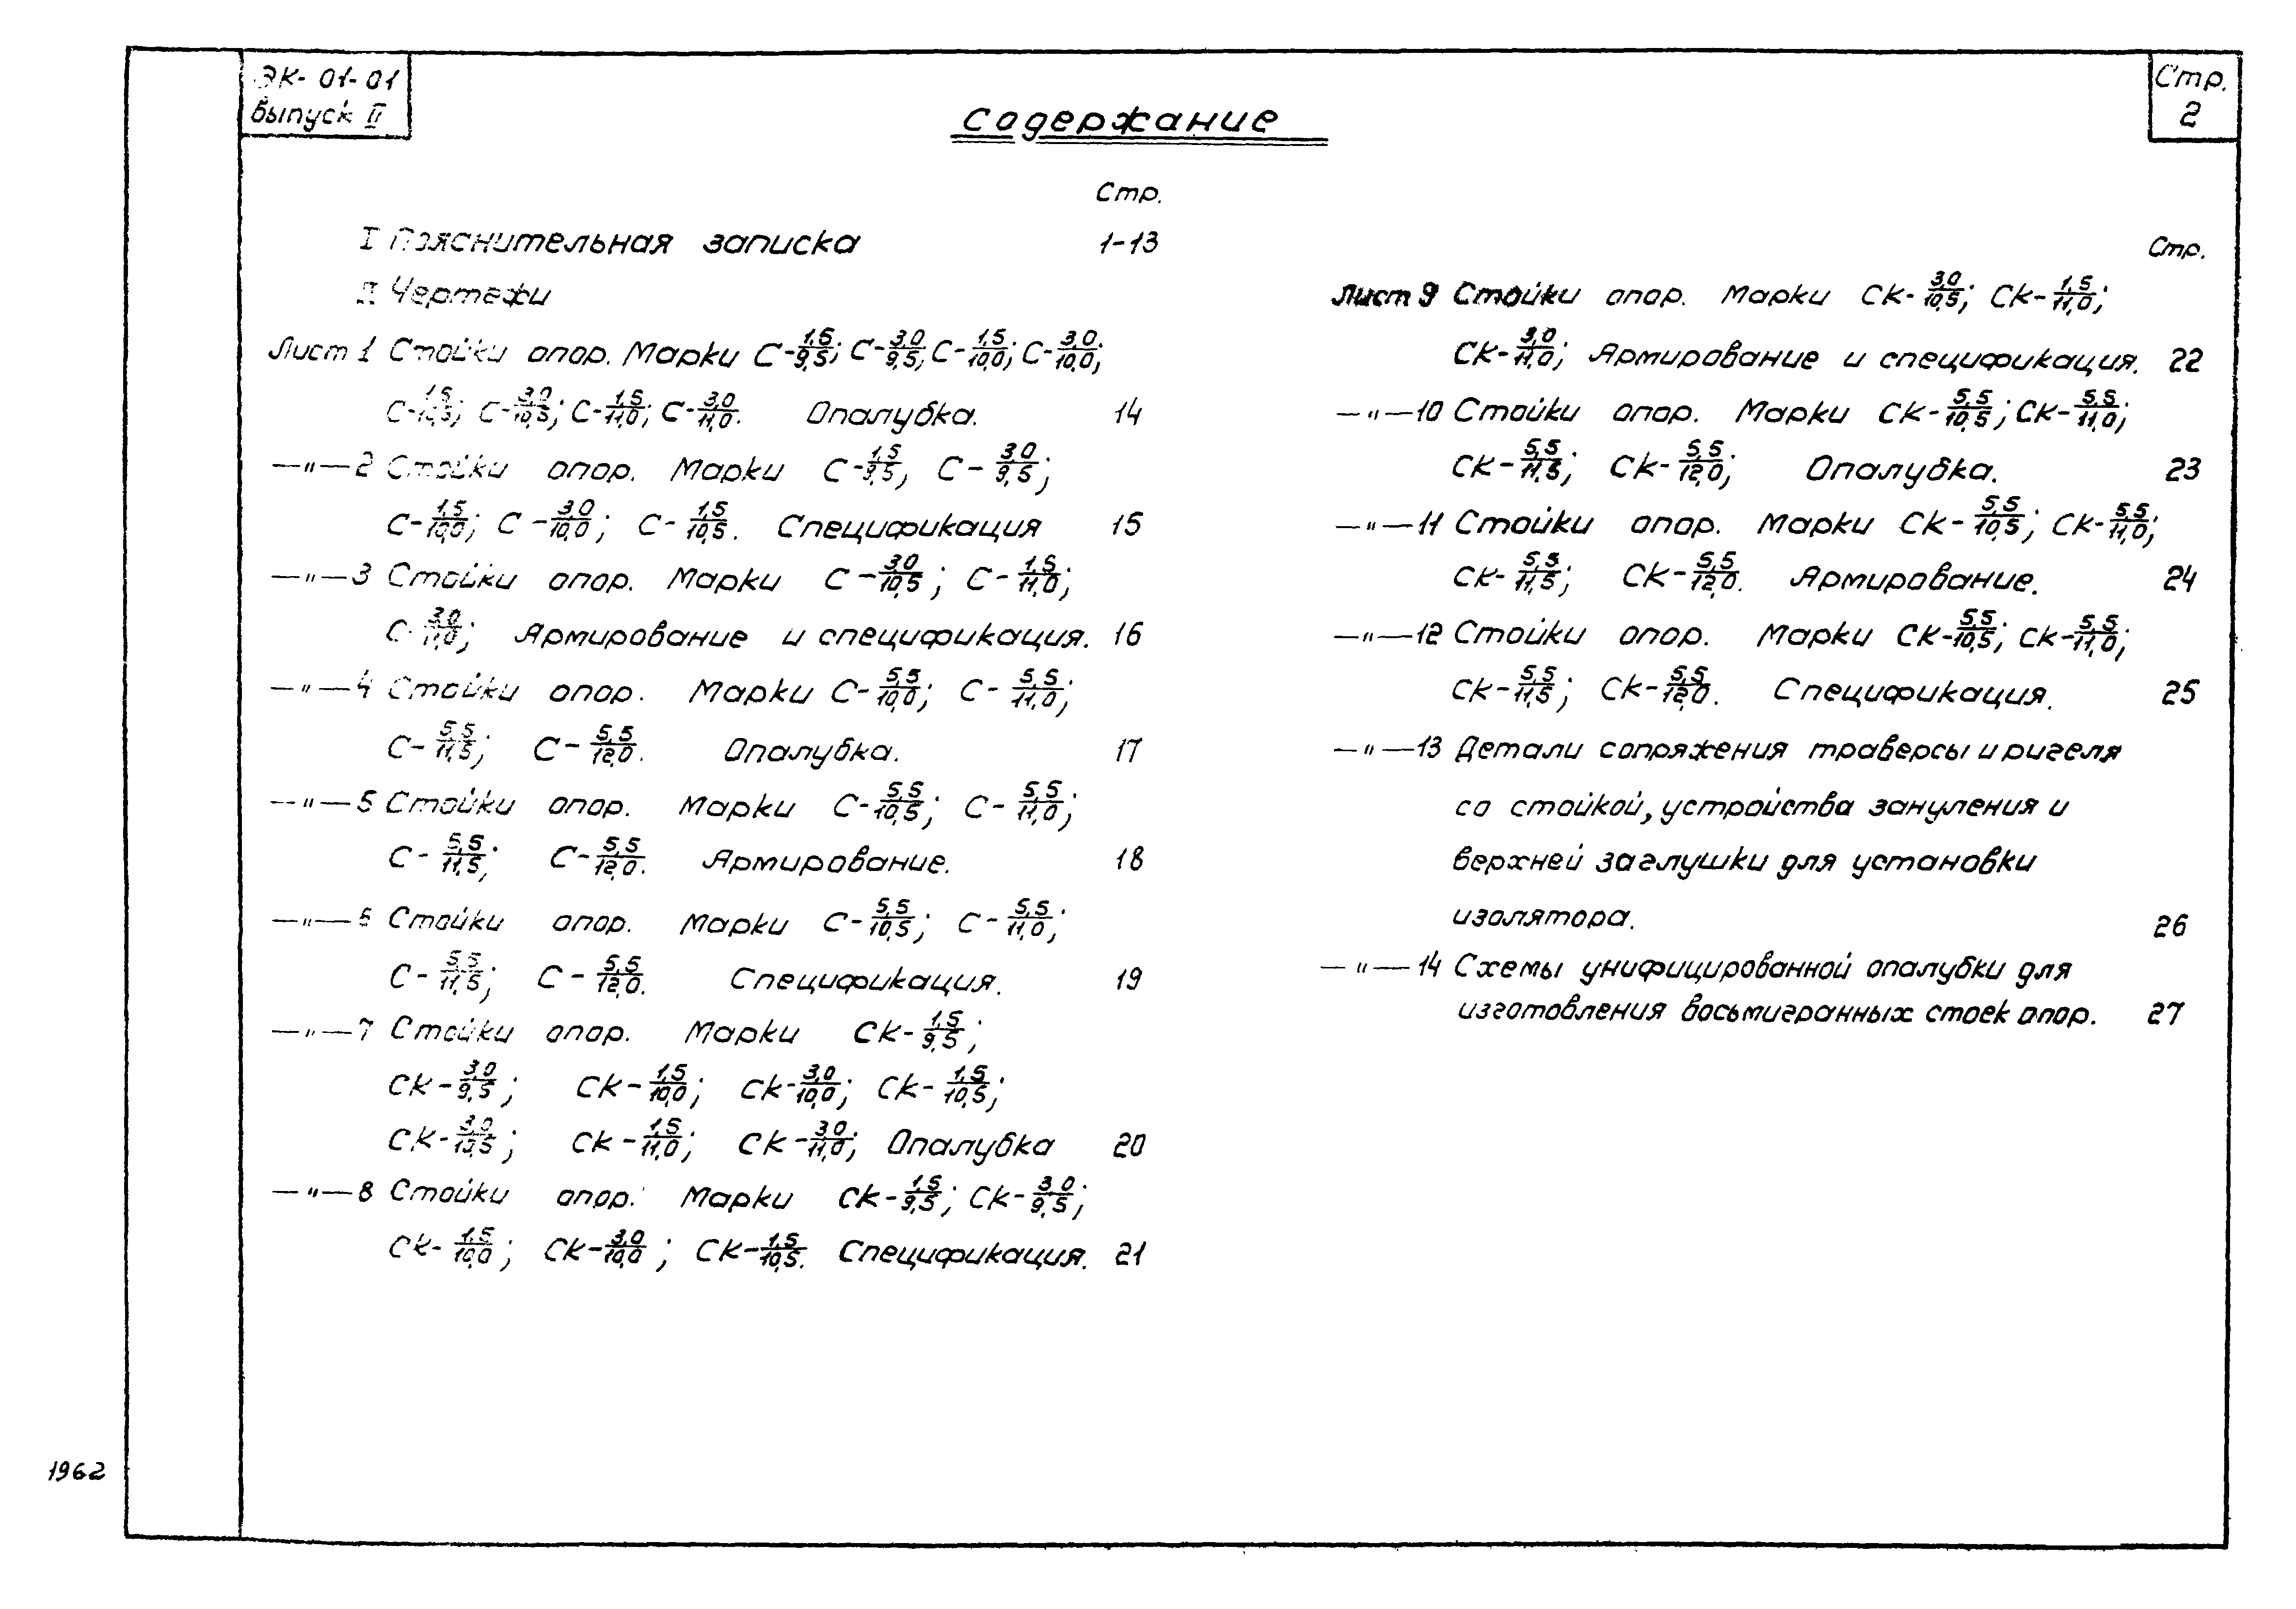 ЭК- 01-01
Выпуск II
Содержание
Стр.
2
Стр.
I Пояснительная записка 1-13
II Чертежи
Лист 1 Стойки опор. Марки С-1,5/9,5; С-3,0/9,5; С-1,5/10,0; С-3,0/10,0;
С-1,5/10,5; С-3,0/10,5; С-1,5/11,0; С-3,0/11,0. Опалубка. 14
—"—2 Стойки опор. Марки С-1,5/9,5; С-3,0/9,5;
С-1,5/10,0; С-3,0/10,0; С-1,5/10,5. Спецификация 15
—"—3 Стойки опор. Марки С-3,0/10,5; С-1,5/11,0;
С-3,0/11,0; Армирование и спецификация. 16
—"—4 Стойки опор. Марки С-5,5/10,0; С-5,5/11,0;
С-5,5/11,5; С-5,5/12,0. Опалубка. 17
—"—5 Стойки опор. Марки С-5,5/10,5; С-5,5/11,0;
С-5,5/11,5; С-5,5/12,0. Армирование. 18
—"—6 Стойки опор. Марки С-5,5/10,5; С-5,5/11,0;
С-5,5/11,5; С-5,5/12,0. Спецификация. 19
—"—7 Стойки опор. Марки СК-1,5/9,5;
СК-3,0/9,5; СК-1,5/10,0; СК-3,0/10,0; СК-1,5/10,5;
СК-3,0/10,5; СК-1,5/11,0; СК-3,0/11,0; Опалубка 20
—"—8 Стойки опор. Марки СК-1,5/9,5; СК-3,0/9,5;
СК-1,5/10,0; СК-3,0/10,0; СК-1,5/10,5. Спецификация. 21
Стр.
Лист 9 Стойки опор. Марки СК-3,0/10,5; СК-1,5/11,0;
СК-3,0/11,0; Армирование и спецификация. 22
—"—10 Стойки опор. Марки СК-5,5/10,5; СК-5,5/11,0;
СК-5,5/11,5; СК-5,5/12,0; Опалубка. 23
—"—11 Стойки опор. Марки СК-5,5/10,5; СК-5,5/11,0;
СК-5,5/11,5; СК-5,5/12,0. Армирование. 24
—"—12 Стойки опор. Марки СК-5,5/10,5; СК-5,5/11,0;
СК-5,5/11,5; СК-5,5/12,0. Спецификация. 25
—"—13 Детали сопряжения траверсы и ригеля
со стойкой, устройства зануления и
верхней заглушки для установки
изолятора. 26
—"—14 Схемы унифицированной опалубки для
изготовления восьмигранных стоек опор. 27
1962